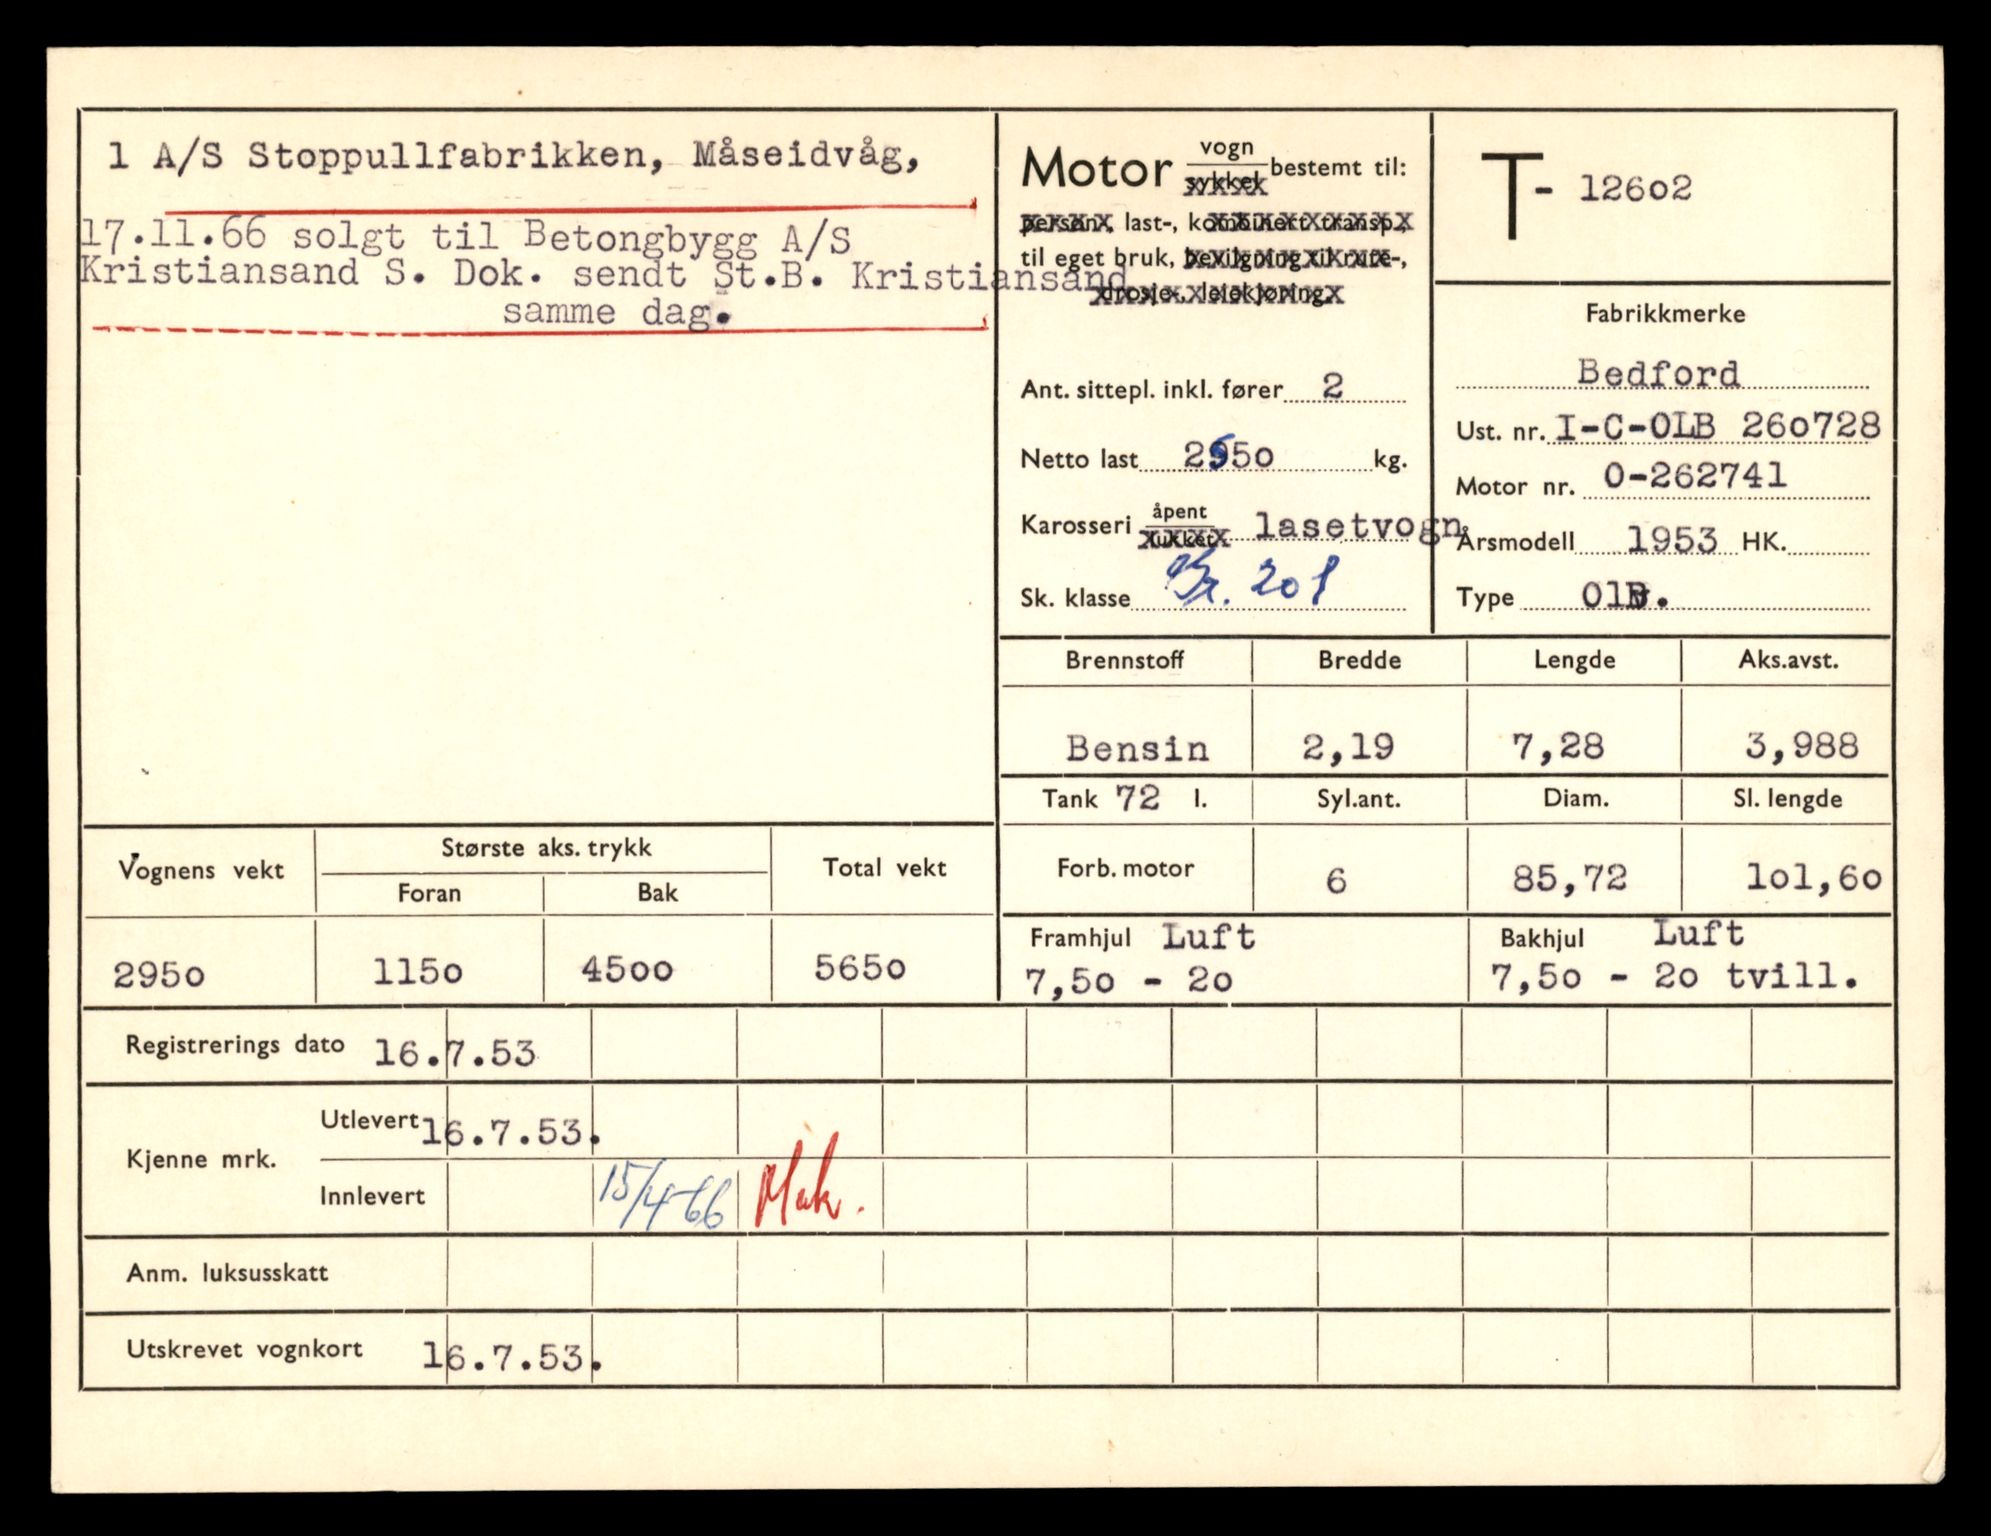 1 A/S Stoppullfabrikken, Måseidvåg,
17.11.66 solgt til Betongbygg A/S
Kristiansand S. Dok. sendt St.B. Kristiansand
samme dag.
Motor vogn/sykkel bestemt til:
person-, last-, kombinert transp.,
til eget bruk, bevilgning til rute-,
drosje-, leiekjøring.
Ant. sittepl. inkl. fører 2
Netto last 2550 kg.
Karosseri åpent/lukket lasetvogn
Sk. klasse 201
T- 12602
Fabrikkmerke
Bedford
Ust. nr. I-C-OLB 260728
Motor nr. O-262741
Årsmodell 1953 HK.
Type OlB.
Brennstoff Bredde Lengde Aks.avst.
Bensin 2,19 7,28 3,988
Tank 72 l. Syl.ant. Diam. Sl. lengde
Forb. motor 6 85,72 101,60
Framhjul Luft
7,50 - 20
Bakhjul Luft
7,50 - 20 tvill.
Vognens vekt Største aks. trykk Total vekt
Foran Bak
2950 1150 4500 5650
Registrerings dato 16.7.53
Kjenne mrk. Utlevert 16.7.53.
Innlevert 15/4-66 Mak.
Anm. luksusskatt
Utskrevet vognkort 16.7.53.